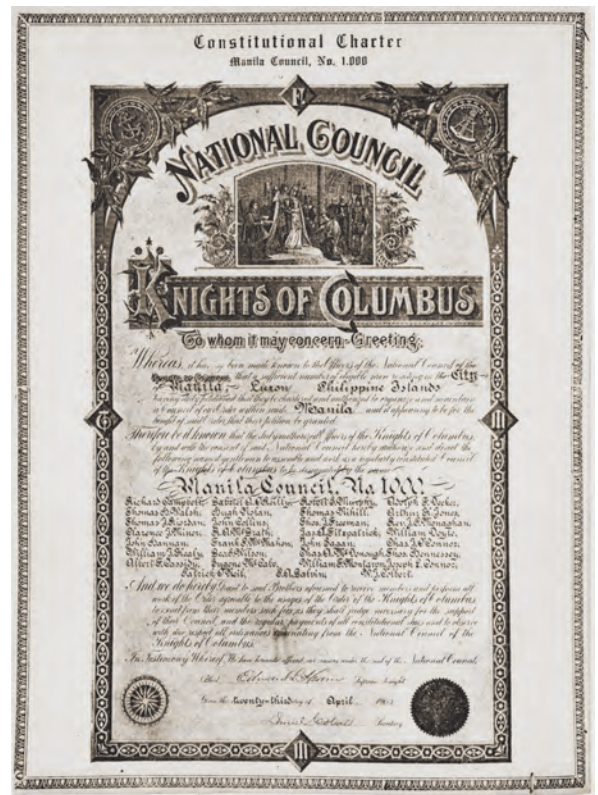 Constitutional Charter
Manila Council, No. 1.000
F
NATIONAL COUNCIL
KNIGHTS OF COLUMBUS
To whom it may concern, Greeting:
Whereas, it having been made known to the Officers of the National Council of the
that a sufficient number of eligible men residing in the City
Manila, Luzon Philippine Islands
having duly petitioned that they be chartered and authorized to organize and
a Council of our Order within said Manila and it appearing to be for the
benefit of said Order that their petition be granted.
Therefore be it known that the duly authorized Officers of the Knights of Columbus,
by and with the consent of said National Council hereby authorize and direct the
following named gentlemen to assemble and work as a regularly constituted Council
of the Knights of Columbus to be designated by the name
Manila Council, No. 1000
Richard Campbell, Gabriel A. O'Reilly, Robert E. Murphy, Adolph F. Decker,
Thomas B. Walsh, Hugh Nolan, Thomas Nihill, Arthur H. Jones,
Thomas J. Riordan, John Collins, Thos. J. Freeman, Rev. J. C. Monaghan,
Clarence J. Minor, Jas. L. Fitzpatrick, William Doyle,
John Bannan, Frank E. McMahon, John Eagan, Chas. J. O'Connor,
William J. Healy, Geo. S. Wilson, Chas. A. McDonough, Thos. Hennessey,
Albert F. Cassidy, Eugene McCabe, William E. Joseph L. Connor,
Patrick O'Neil, E. A. Galvin, M. J. Colbert.
And we do hereby Grant to said Brothers aforesaid to receive members and perform all
work of the Order agreeable to the usages of the Order of the Knights of Columbus,
to exact from their members such fees as they shall judge necessary for the support
of their Council, and the regular payments of all constitutional dues and to observe
with due respect all ordinances emanating from the National Council of the
Knights of Columbus.
In Testimony Whereof, We have hereunto affixed our names under the seal of the National Council.
Supreme Knight
Given this twenty-third day of April
Secretary